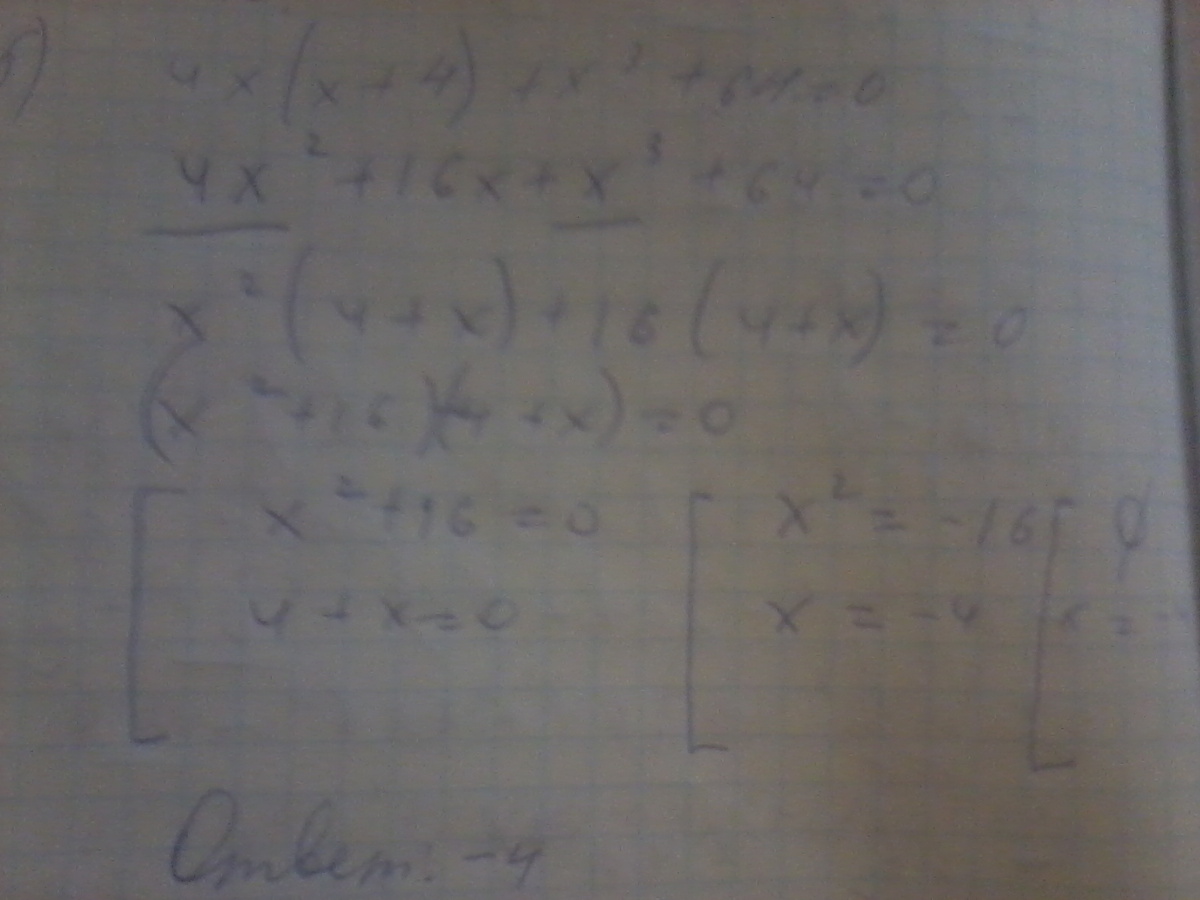 б) 4x(x+4)+x³+64=0
4x²+16x+x³+64=0
x²(4+x)+16(4+x)=0
(x²+16)(4+x)=0
[ x²+16=0 [ x²=-16 [ ∅
4+x=0 x=-4 x=-
Ответ: -4